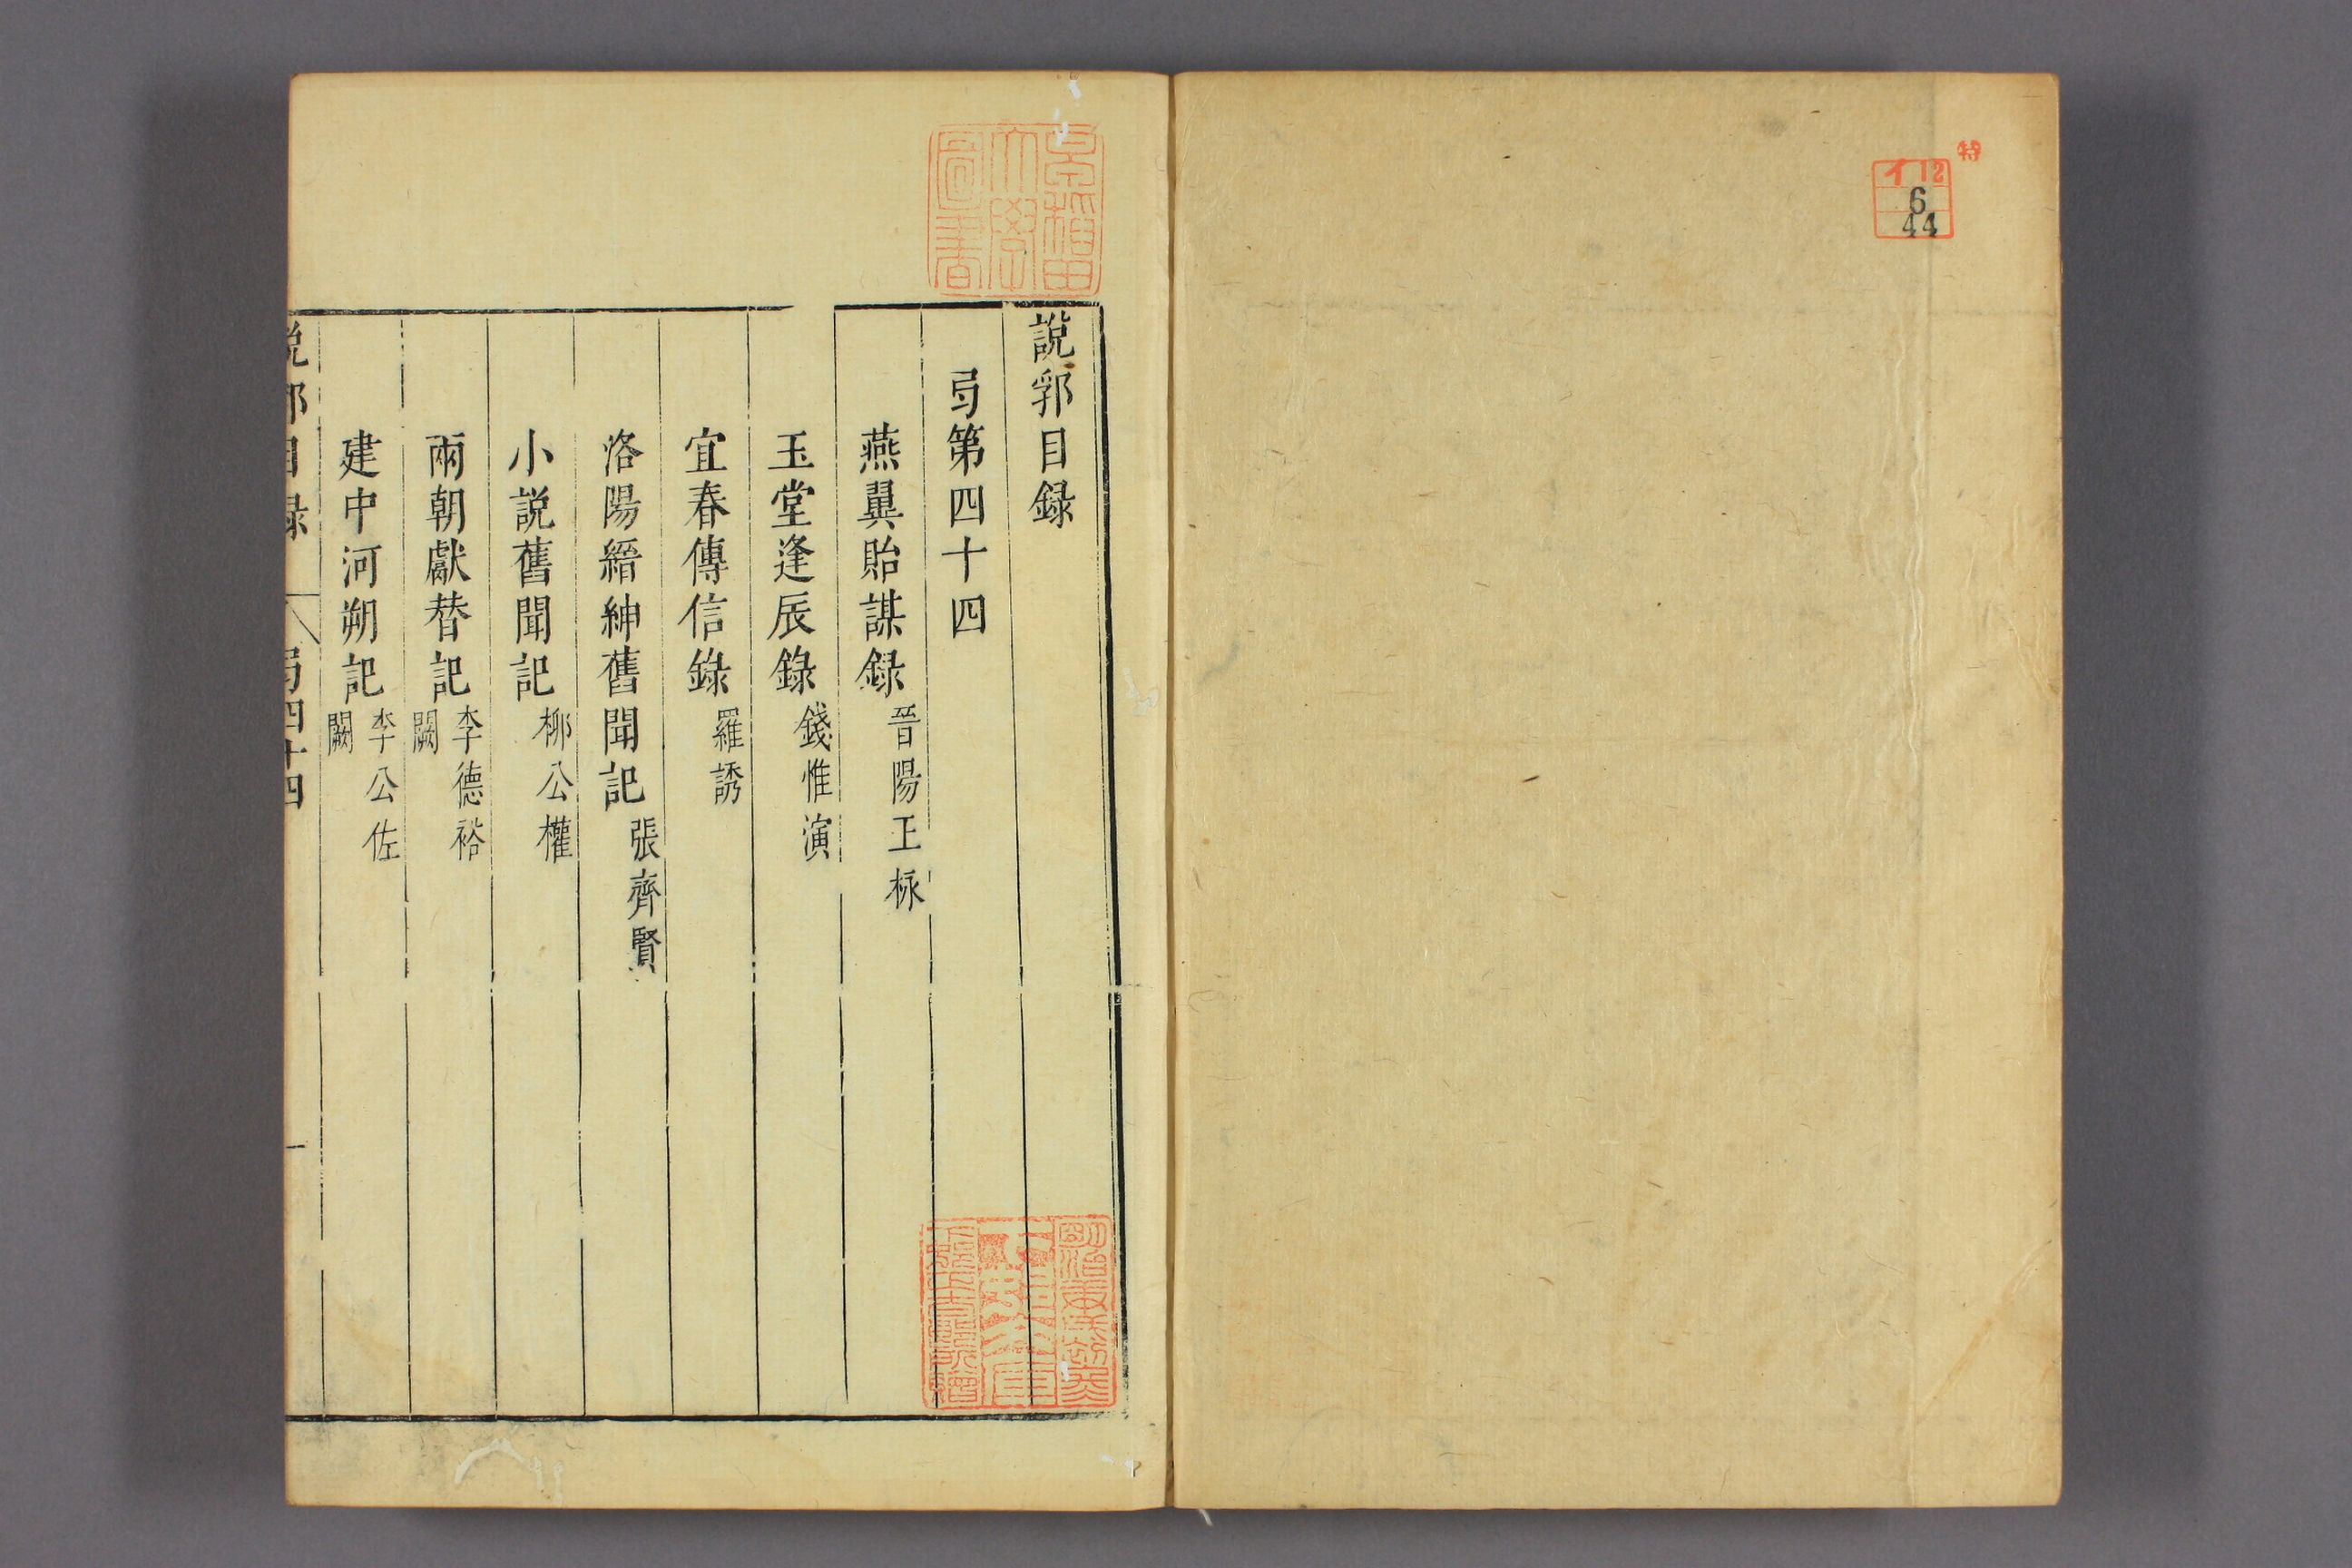 特
イ12
6
44
早稲田
大學
圖書
說郛目録
弓第四十四
燕翼貽謀録 晉陽王栐
玉堂逢辰錄 錢惟演
宜春傳信錄 羅誘
洛陽縉紳舊聞記 張齊賢
小説舊聞記 柳公權
兩朝獻替記 李德裕 闕
建中河朔記 李公佐 闕
説郛目録 弓四十四 一